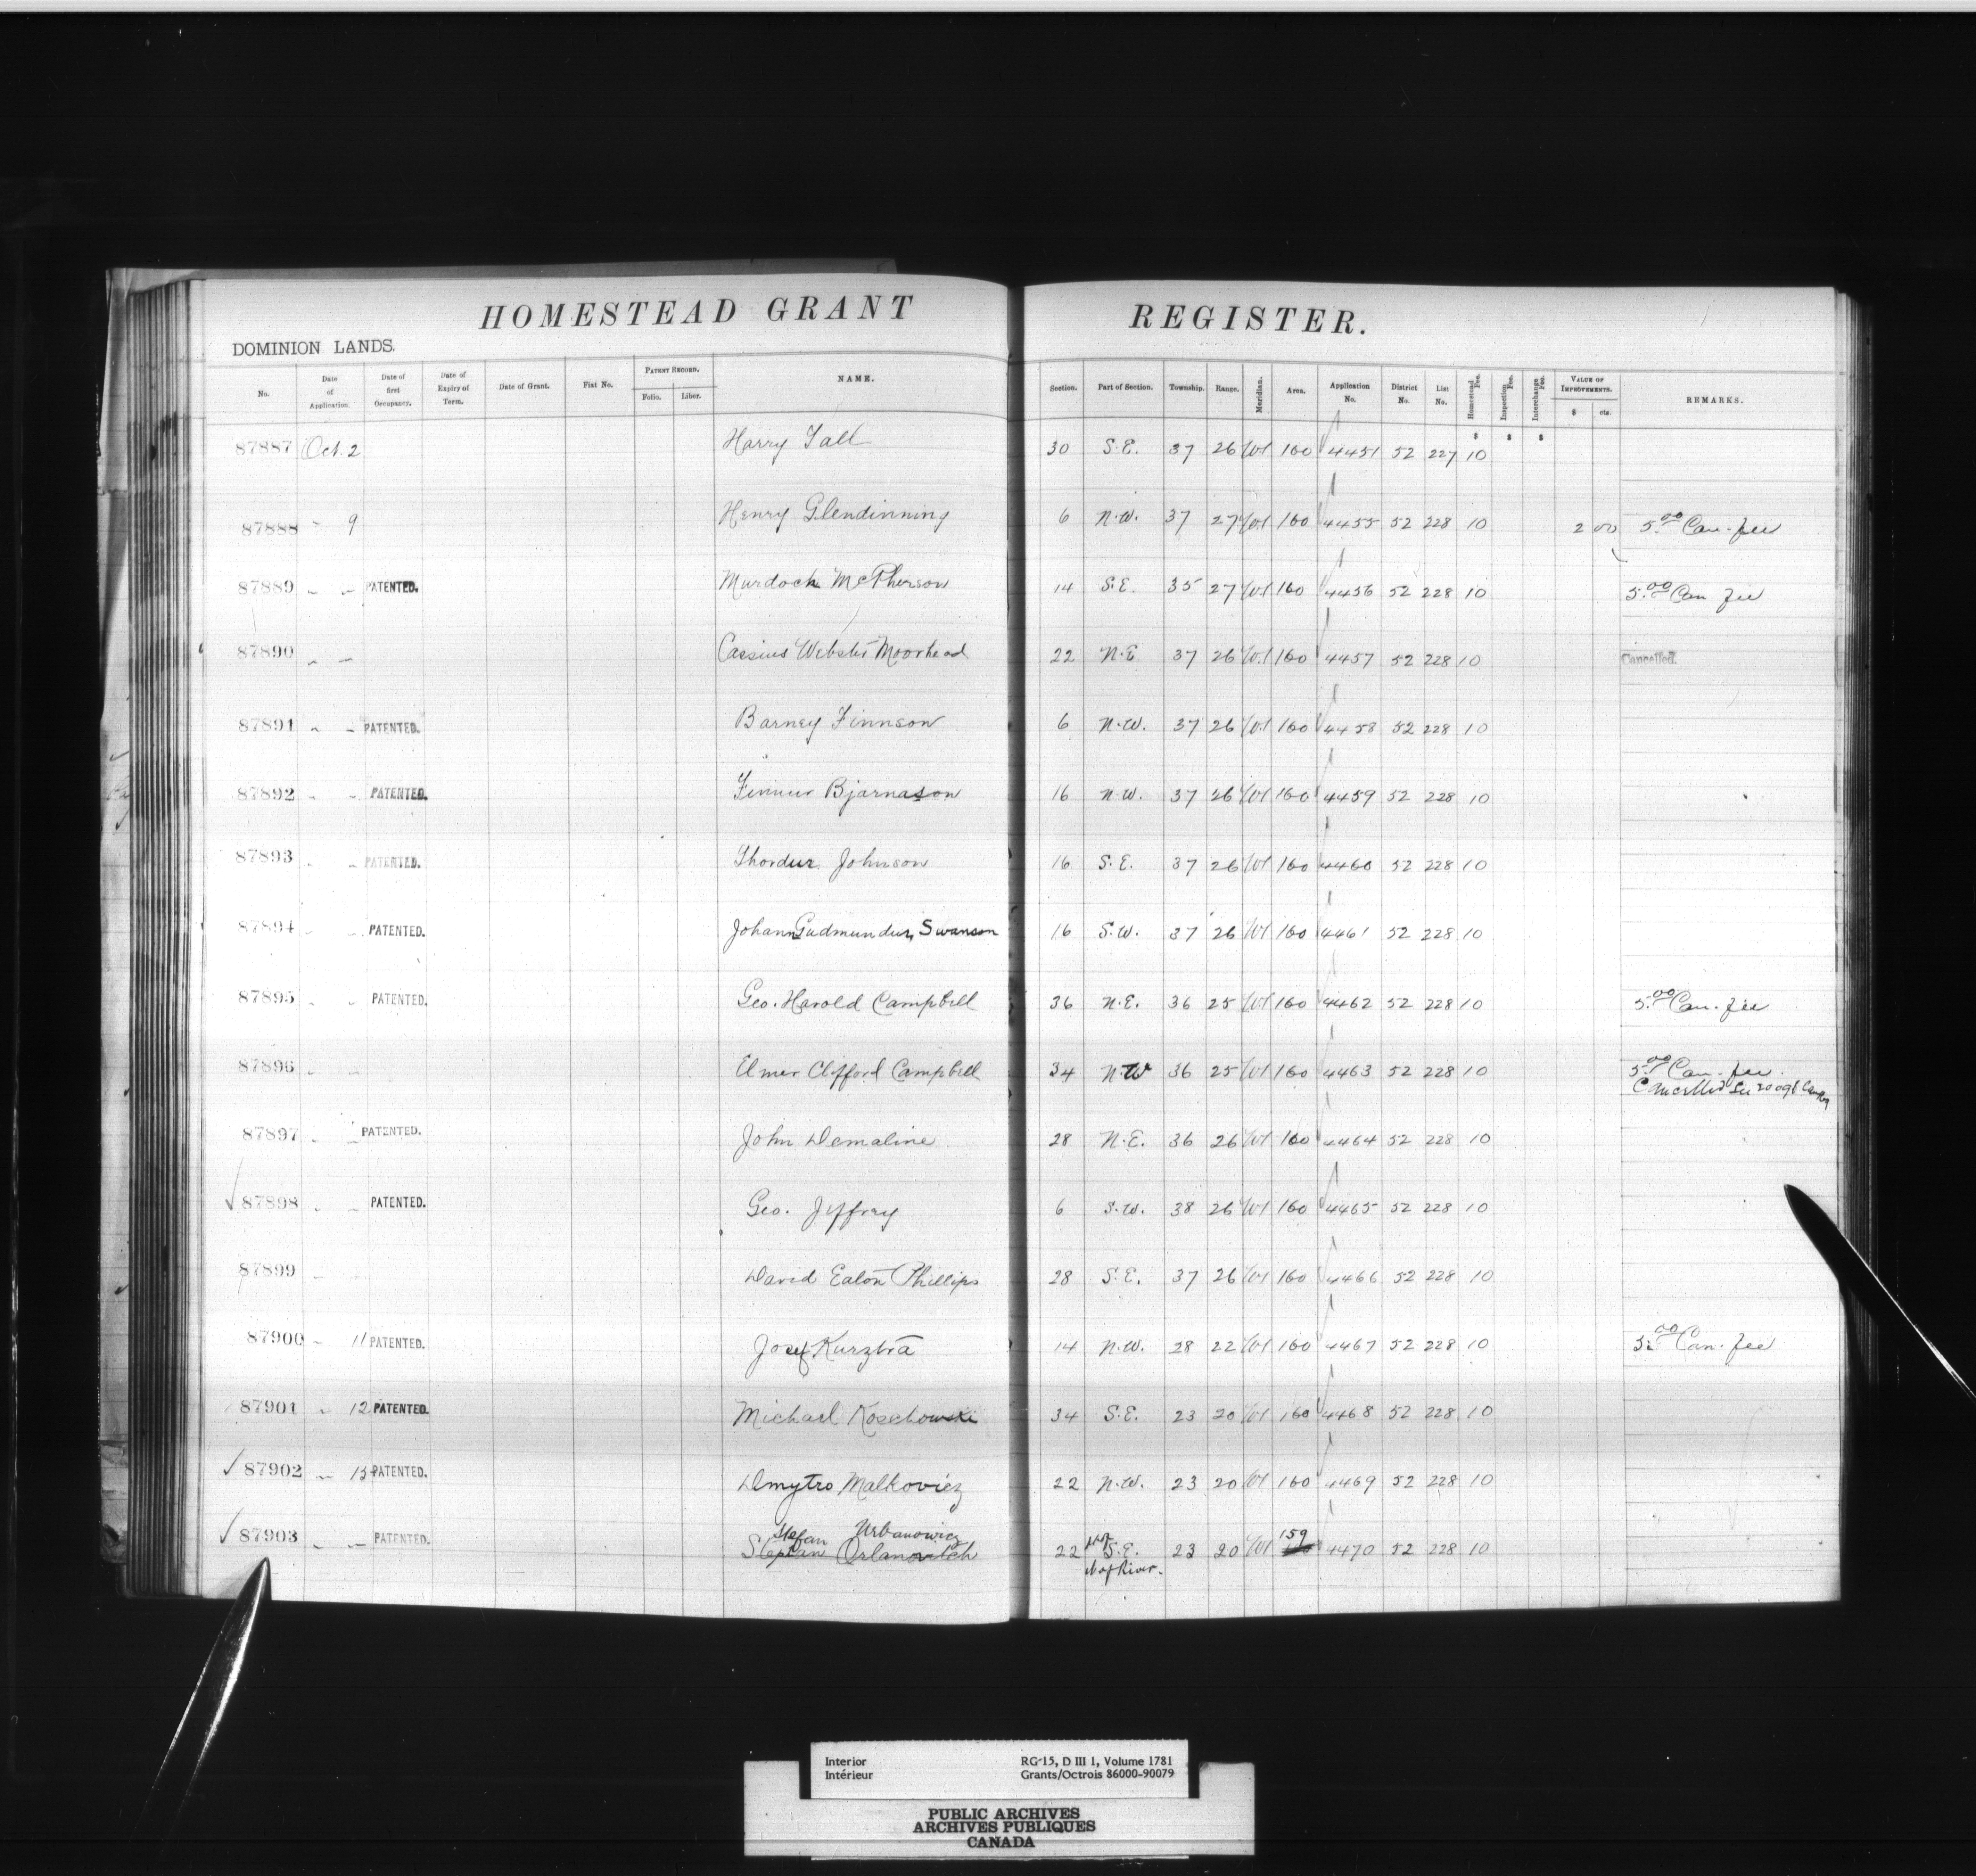 HOMESTEAD GRANT REGISTER.
DOMINION LANDS.
No. Date of Application. Date of first Occupancy. Date of Expiry of Term. Date of Grant. Fiat No. PATENT RECORD. Folio. Liber. NAME. Section. Part of Section. Township. Range. Meridian. Area. Application No. District No. List No. Homestead Fee. Inspection Fee. Interchange Fee. VALUE OF IMPROVEMENTS. $ cts. REMARKS.
$ $ $
87887 Oct. 2 Harry Tall 30 S.E. 37 26 W1 160 4451 52 227 10
87888 " 9 Henry Glendinning 6 N.W. 37 27 W1 160 4455 52 228 10 2 00 5.00 Can. fee
87889 " " PATENTED. Murdock McPherson 14 S.E. 35 27 W1 160 4456 52 228 10 5.00 Can fee
87890 " " Cassius Webster Moorhead 22 N.E 37 26 W1 160 4457 52 228 10 Cancelled.
87891 " " PATENTED. Barney Finnson 6 N.W. 37 26 W1 160 4458 52 228 10
87892 " " PATENTED. Finnur Bjarnason 16 N.W. 37 26 W1 160 4459 52 228 10
87893 " " PATENTED. Thordur Johnson 16 S.E. 37 26 W1 160 4460 52 228 10
87894 " " PATENTED. Johann Gudmundur Swanson 16 S.W. 37 26 W1 160 4461 52 228 10
87895 " " PATENTED. Geo. Harold Campbell 36 N.E. 36 25 W1 160 4462 52 228 10 5.00 Can. fee
87896 " " Elmer Clifford Campbell 34 N.W 36 25 W1 160 4463 52 228 10 5.00 Can. fee.
Cancelled See
87897 " " PATENTED. John Demaline 28 N.E. 36 26 W1 160 4464 52 228 10
87898 " " PATENTED. Geo. Jeffrey 6 S.W. 38 26 W1 160 4465 52 228 10
87899 " David Eaton Phillips 28 S.E. 37 26 W1 160 4466 52 228 10
87900 " 11 PATENTED. Josef Kurzbra 14 N.W. 28 22 W1 160 4467 52 228 10 5.00 Can. fee
87901 " 12 PATENTED. Michael Koschowski 34 S.E. 23 20 W1 160 4468 52 228 10
87902 " 13 PATENTED. Dmytro Malkovicz 22 N.W. 23 20 W1 160 4469 52 228 10
Stefan Urbanowicz 159
87903 " " PATENTED. Stephan Orlanovitch 22 S.E. 23 20 W1 4470 52 228 10
N of River.
Interior RG-15, D III 1, Volume 1781
Intérieur Grants/Octrois 86000-90079
PUBLIC ARCHIVES
ARCHIVES PUBLIQUES
CANADA